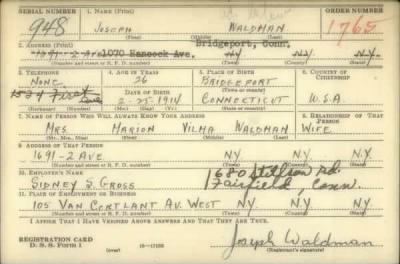 SERIAL NUMBER 1. NAME (Print) ORDER NUMBER
948 JOSEPH WALDMAN 1765
(First) (Middle) (Last)
2. ADDRESS (Print) Bridgeport, Conn.
1691-2 Ave 1070 Hancock Ave. N.Y. N.Y.
(Number and street or R. F. D. number) (Town) (County) (State)
3. TELEPHONE 4. AGE IN YEARS 5. PLACE OF BIRTH 6. COUNTRY OF CITIZENSHIP
NONE 26 BRIDGEPORT
1524 First Ave DATE OF BIRTH (Town or county)
2-25-1914 CONNECTICUT U.S.A.
(Exchange) (Number) (Mo.) (Day) (Yr.) (State or country)
7. NAME OF PERSON WHO WILL ALWAYS KNOW YOUR ADDRESS 8. RELATIONSHIP OF THAT PERSON
MRS. MARION VILMA WALDMAN WIFE
(Mr., Mrs., Miss) (First) (Middle) (Last)
9. ADDRESS OF THAT PERSON
1691-2 AVE N.Y. N.Y. N.Y.
(Number and street or R. F. D. number) (Town) (County) (State)
10. EMPLOYER'S NAME
SIDNEY S. GROSS 1680 Stillson Rd.
Fairfield, Conn.
11. PLACE OF EMPLOYMENT OR BUSINESS
105 VAN CORTLANT AV. WEST N.Y. N.Y.
(Number and street or R. F. D. number) (Town) (County) (State)
I AFFIRM THAT I HAVE VERIFIED ABOVE ANSWERS AND THAT THEY ARE TRUE.
REGISTRATION CARD
D. S. S. Form 1 (over) 16—17105 Joseph Waldman
(Registrant's signature)